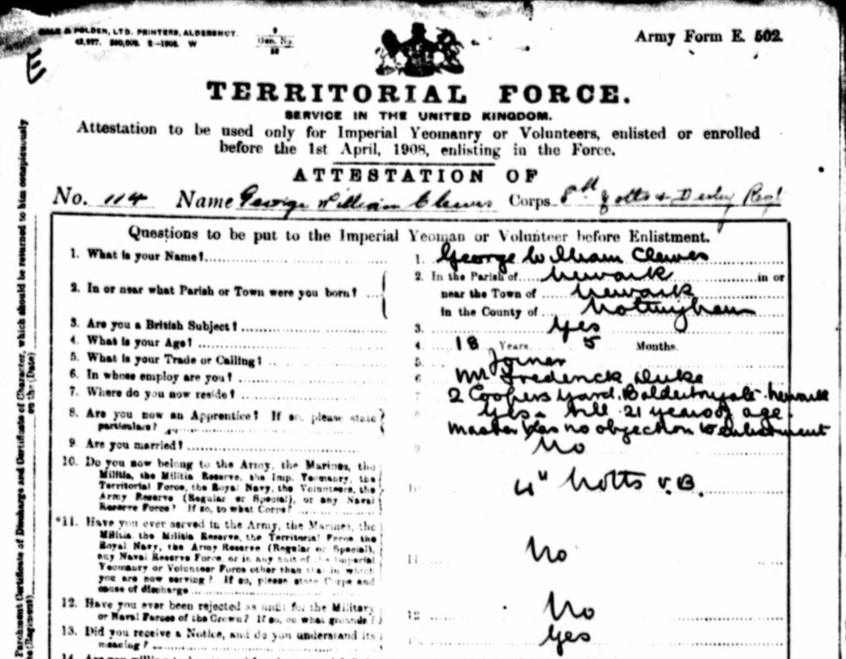 GALE & POLDEN, LTD. PRINTERS, ALDERSHOT.
Army Form E. 502.
E
TERRITORIAL FORCE.
SERVICE IN THE UNITED KINGDOM.
Attestation to be used only for Imperial Yeomanry or Volunteers, enlisted or enrolled
before the 1st April, 1908, enlisting in the Force.
ATTESTATION OF
No. 114 Name George William Clewes Corps 8th Notts & Derby Regt
Questions to be put to the Imperial Yeoman or Volunteer before Enlistment.
1. What is your Name? 1. George William Clewes
2. In or near what Parish or Town were you born? 2. In the Parish of Newark in or
near the Town of Newark
in the County of Nottingham
3. Are you a British Subject? 3. Yes
4. What is your Age? 4. 18 Years 5 Months.
5. What is your Trade or Calling? 5. Joiner
6. In whose employ are you? 6. Mr Frederick Duke
7. Where do you now reside? 7. 2 Coopers Yard, Baldertongate Newark
8. Are you now an Apprentice? If so, please state Yes till 21 years of age.
particulars? Master has no objection to enlistment
9. Are you married? 9. No
10. Do you now belong to the Army, the Marines, the
Militia, the Militia Reserve, the Imp. Yeomanry, the
Territorial Force, the Royal Navy, the Volunteers, the
Army Reserve (Regular or Special), or any Naval
Reserve Force? If so, to what Corps? 10. 4th Notts V.B.
*11. Have you ever served in the Army, the Marines, the
Militia the Militia Reserve, the Territorial Force the
Royal Navy, the Army Reserve (Regular or Special),
any Naval Reserve Force, or in any unit of the Imperial
Yeomanry or Volunteer Force other than that in which
you are now serving? If so, please state Corps and
cause of discharge 11. No
12. Have you ever been rejected as unfit for the Military
or Naval Forces of the Crown? If so, on what grounds? 12. No
13. Did you receive a Notice, and do you understand its
meaning? Yes
Parchment Certificate of Discharge and Certificate of Character, which should be returned to him conspicuously
(Regiment) on the (Date)